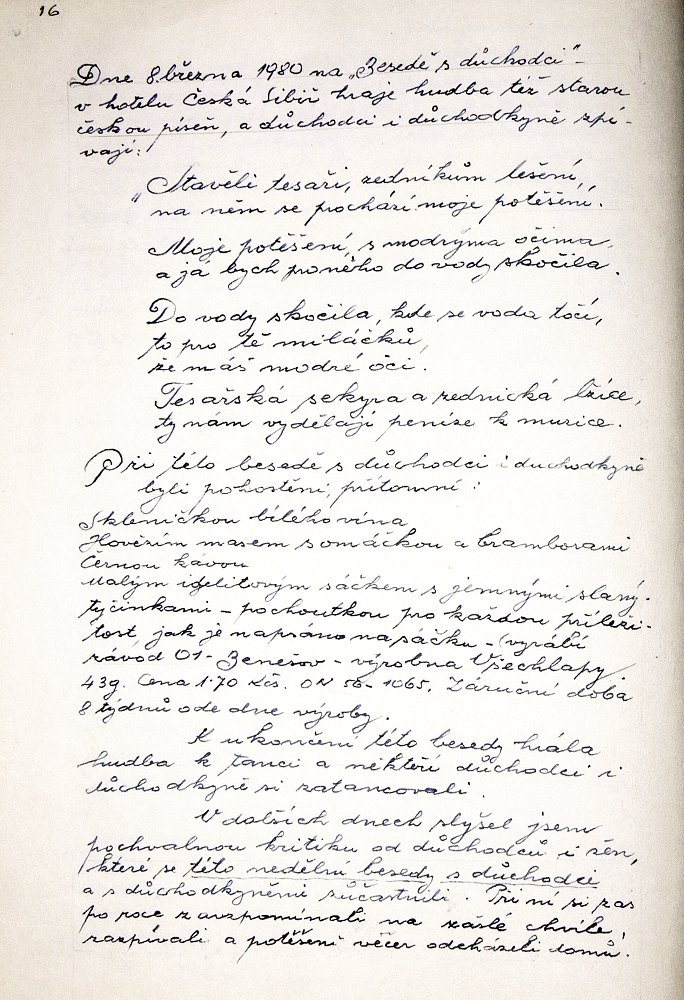 16
Dne 8. března 1980 na „Besedě s důchodci“ -
v hotelu Česká Sibiř hraje hudba též starou
českou píseň, a důchodci i důchodkyně zpí-
vají:
„Stavěli tesaři, zedníkům lešení,
na něm se prochází moje potěšení.
Moje potěšení, s modrýma očima,
a já bych pro něho do vody skočila.
Do vody skočila, kde se voda točí,
to pro tě miláčků,
že máš modré oči.
Tesařská sekyra a zednická lžíce,
ty nám vydělají peníze k muzice.
Při této besedě s důchodci i duchodkyně
byli pohostěni, přítomní:
Skleničkou bílého vína
Hovězím masem s omáčkou a bramborami
Černou kávou
Malým igelitovým sáčkem s jemnými slaný-
tyčinkami - pochoutkou pro každou příleži-
tost, jak je napsáno na sáčku - (vyrábí
závod 01 - Benešov - výrobna Všechlapy
43g. Cena 1·70 Kčs. ON 56-1065. Záruční doba
8 týdnů ode dne výroby.
K ukončení této besedy hrála
hudba k tanci a někteří důchodci i
důchodkyně si zatancovali.
V dalších dnech slyšel jsem
pochvalnou kritiku od důchodců i žen,
které se této nedělní besedy s důchodci
a s důchodkyněmi súčastnili. Při ní si zas
po roce zavzpomínali na zašlé chvíle,
zazpívali a potěšeni večer odcházeli domů.